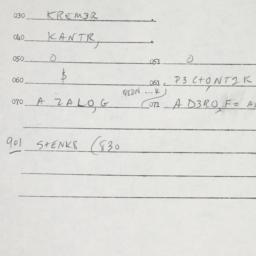 030 KREM3R .
040 KANTR, .
050 0 051 0
060 $ 061 P3C+O,NT2K
070 AZALO,G (072 AD3RO,F=A
901 S+ENK8 (830